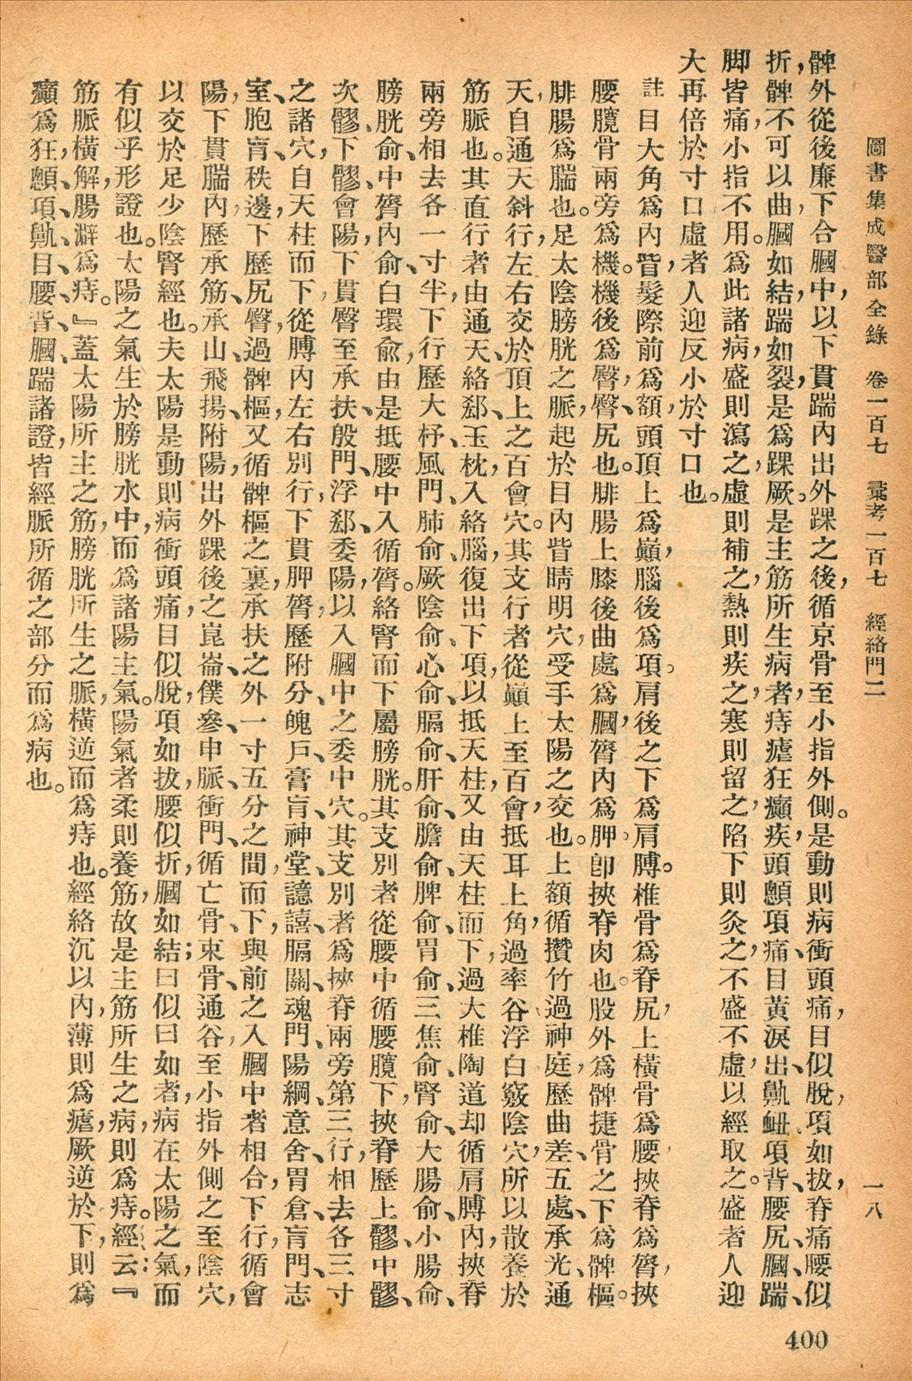 圖書集成醫部全錄　卷一百七　彙考一百七　經絡門二　一八
髀外從後廉下合膕中，以下貫踹內，出外踝之後，循京骨，至小指外側。是動則病衝頭痛，目似脫，項如拔，脊痛腰似
折，髀不可以曲，膕如結，踹如裂，是爲踝厥。是主筋所生病者，痔瘧狂癲疾，頭顖項痛，目黃淚出，鼽衄，項、背、腰、尻、膕、踹、
脚皆痛，小指不用。爲此諸病，盛則瀉之，虛則補之，熱則疾之，寒則留之，陷下則灸之，不盛不虛，以經取之。盛者人迎
大再倍於寸口，虛者人迎反小於寸口也。
註　目大角爲內眥，髮際前爲額，頭頂上爲巔，腦後爲項。肩後之下爲肩膊。椎骨爲脊，尻上橫骨爲腰，挾脊爲膂，挾
腰髖骨兩旁爲機。機後爲臀，臀、尻也。腓腸上膝後曲處爲膕，膂內爲胂，卽挾脊肉也。股外爲髀，捷骨之下爲髀樞。
腓腸爲腨也。足太陰膀胱之脈，起於目內眥睛明穴，受手太陽之交也。上額循攢竹，過神庭，歷曲差、五處、承光、通
天，自通天斜行，左右交於頂上之百會穴。其支行者，從巔上至百會，抵耳上角，過率谷、浮白、竅陰穴，所以散養於
筋脈也。其直行者，由通天、絡郄、玉枕，入絡腦，復出下項，以抵天柱，又由天柱而下，過大椎、陶道，却循肩膊內，挾脊
兩旁相去各一寸半，下行歷大杼、風門、肺俞、厥陰俞、心俞、膈俞、肝俞、膽俞、脾俞、胃俞、三焦俞、腎俞、大腸俞、小腸俞、
膀胱俞、中膂內俞、白環俞，由是抵腰中，入循膂，絡腎而下屬膀胱。其支別者，從腰中循腰髖下，挾脊歷上髎、中髎、
次髎、下髎、會陽，下貫臀，至承扶、殷門、浮郄、委陽，以入膕中之委中穴。其支別者，爲挾脊兩旁第三行，相去各三寸
之諸穴，自天柱而下，從膊內左右別行，下貫胛膂，歷附分、魄戶、膏肓、神堂、譩譆、膈關、魂門、陽綱、意舍、胃倉、肓門、志
室、胞肓、秩邊，下歷尻臀，過髀樞，又循髀樞之裏，承扶之外一寸五分之間而下，與前之入膕中者相合，下行循會
陽，下貫腨內，歷承筋、承山、飛揚、附陽，出外踝後之崑崙、僕參、申脈、衝門，循亡骨、束骨、通谷，至小指外側之至陰穴，
以交於足少陰腎經也。夫太陽是動則病衝頭痛，目似脫，項如拔，腰似折，膕如結；曰似曰如者，病在太陽之氣，而
有似乎形證也。太陽之氣生於膀胱水中，而爲諸陽主氣。陽氣者柔則養筋，故是主筋所生之病，則爲痔。經云：『
筋脈橫解，腸澼爲痔。』蓋太陽所主之筋，膀胱所生之脈，橫逆而爲痔也。經絡沉以內，薄則爲瘧，厥逆於下，則爲
癲爲狂，顖、項、鼽、目、腰、背、膕、踹諸證，皆經脈所循之部分而爲病也。
400